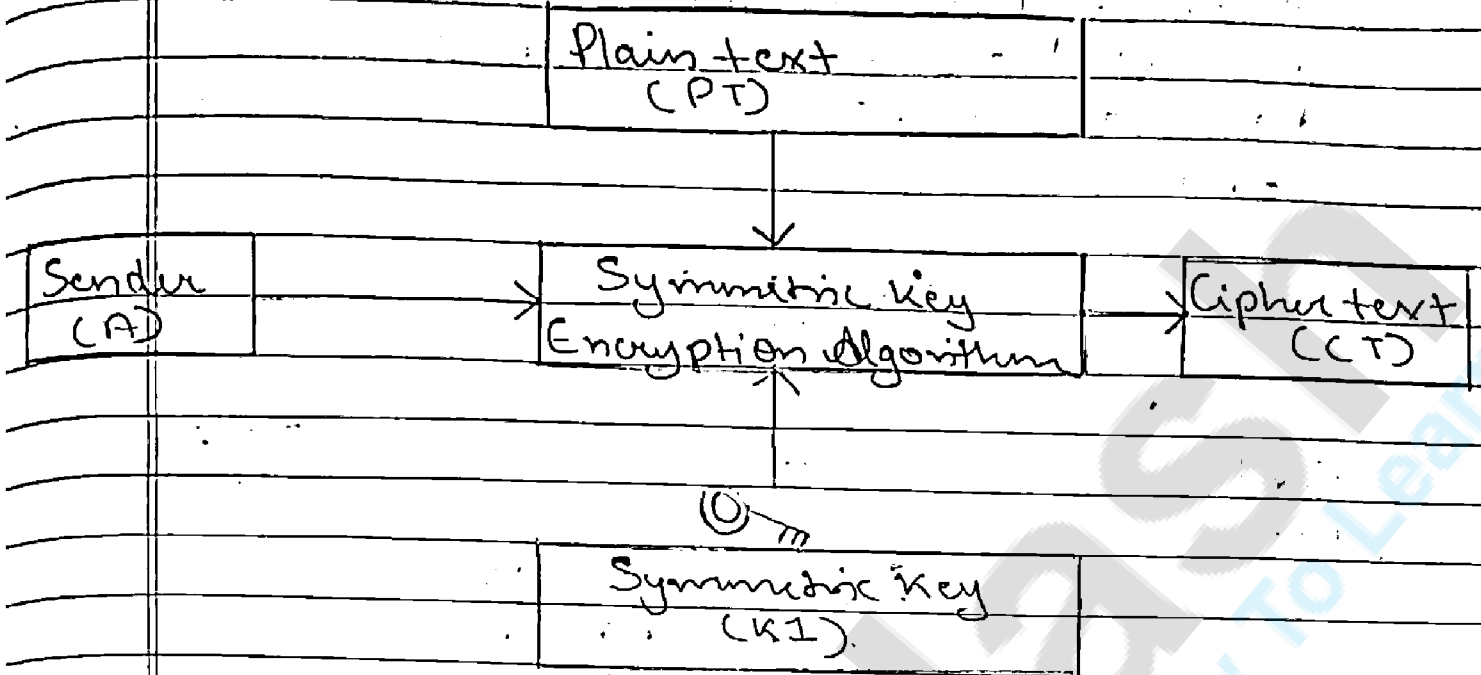 Plain text
(PT)
Sender
(A)
Symmetric Key
Encryption Algorithm
Cipher text
(CT)
Symmetric Key
(K1).
To Lear